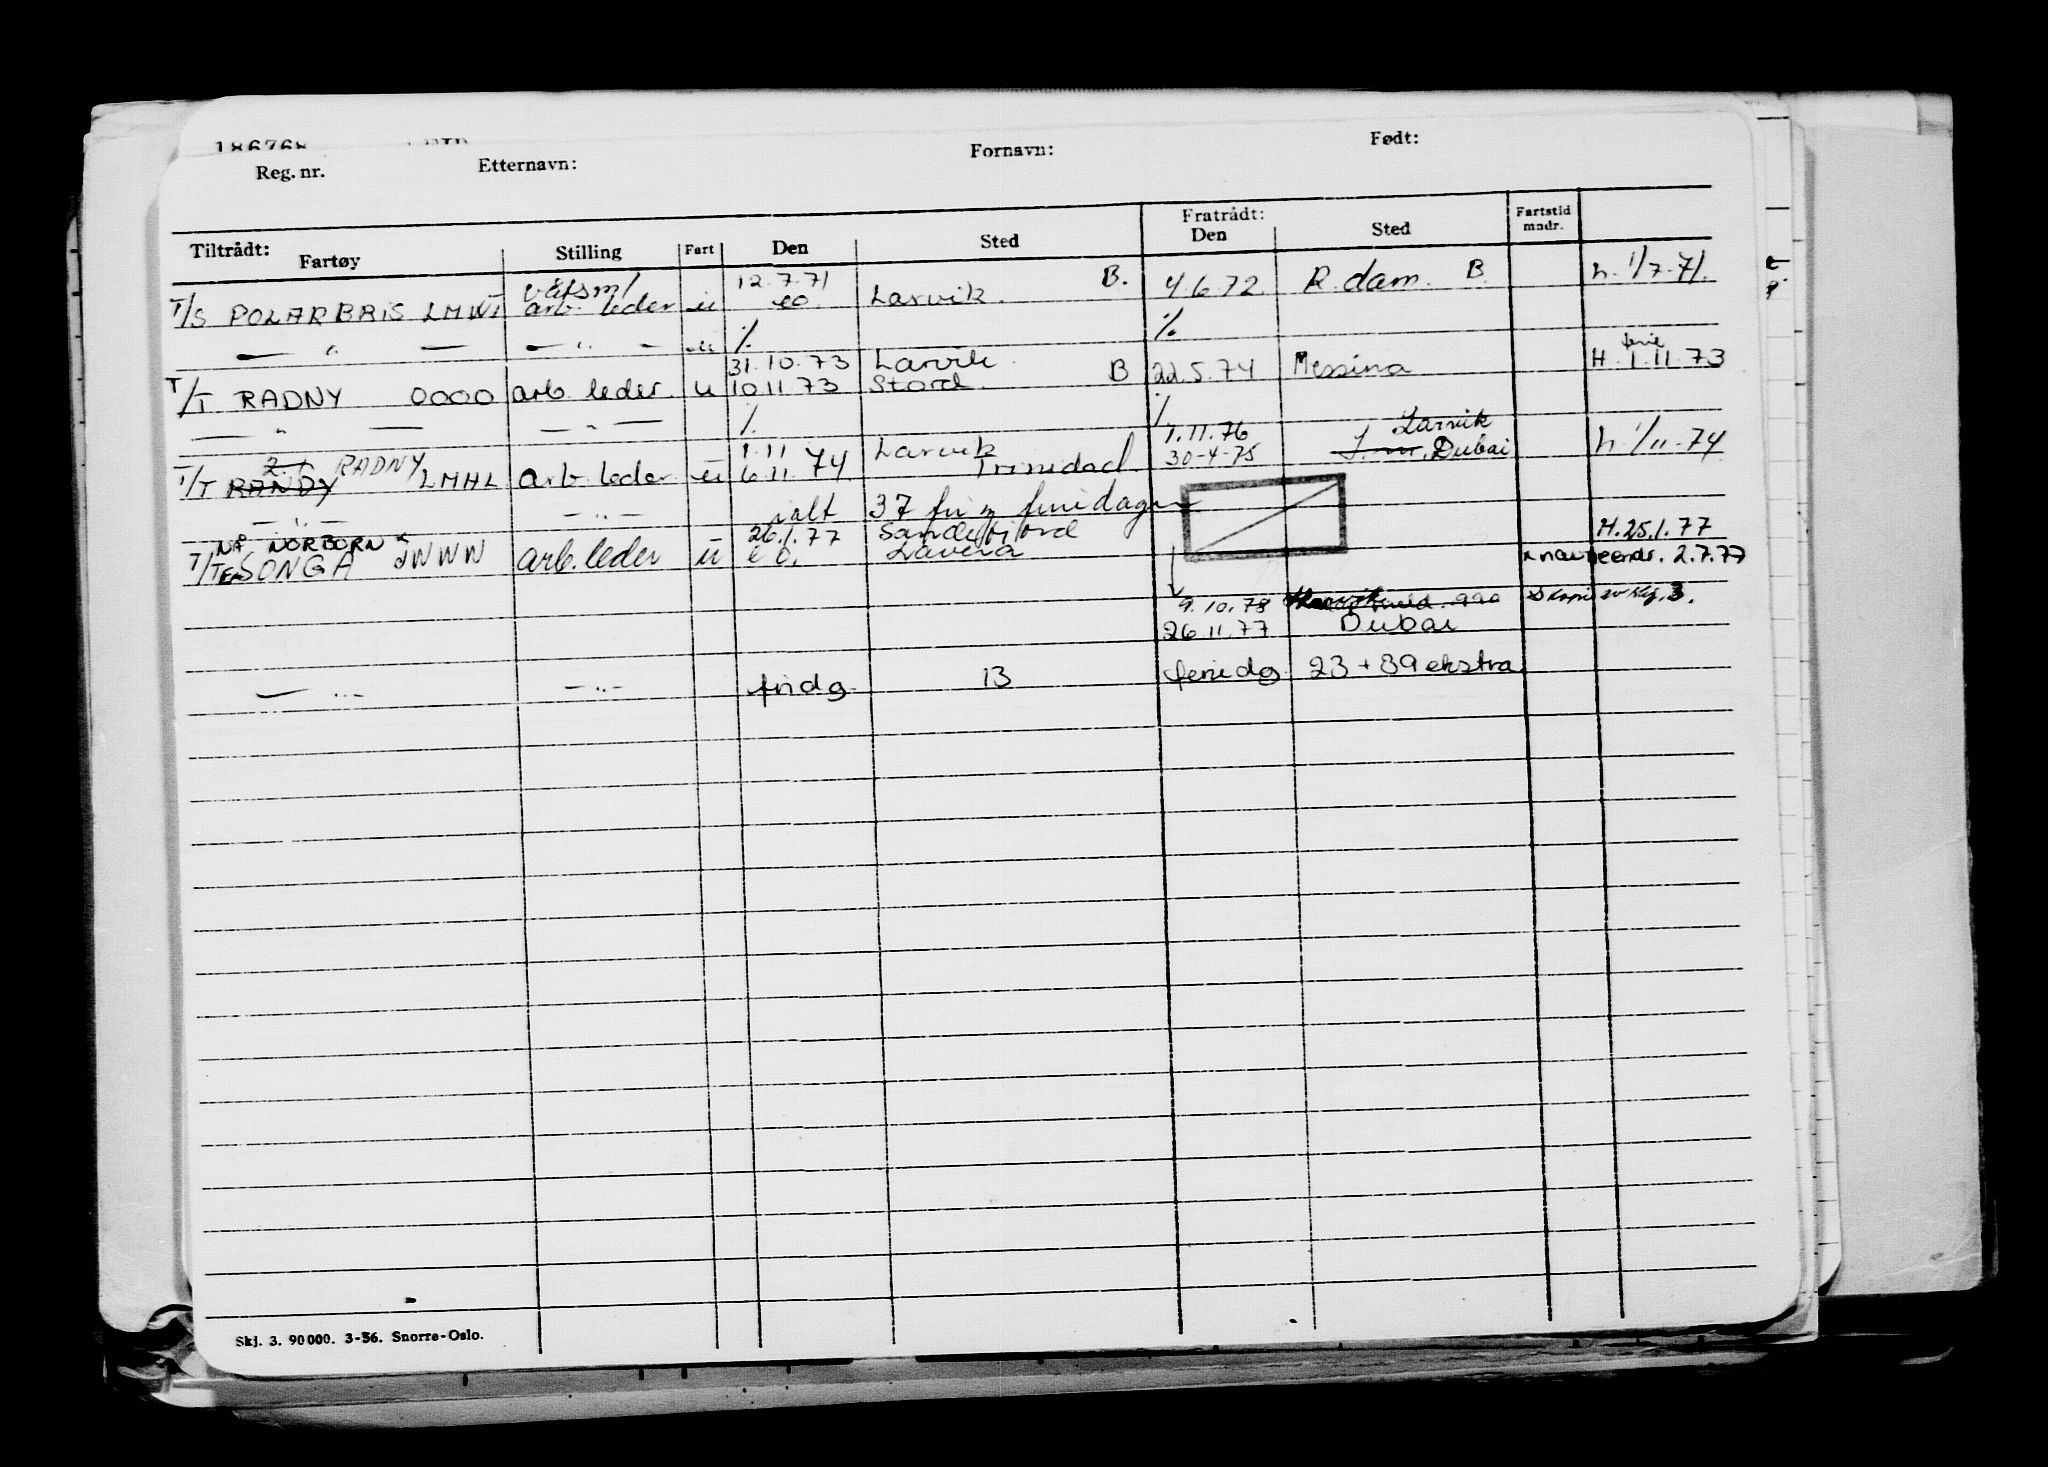 186768
Reg. nr. Etternavn: Fornavn: Født:
Tiltrådt: Fratrådt:
Fartøy Stilling Fart Den Sted Den Sted Fartstid mndr.
12.7.71 B. 4.6.72 R.dam. B. h. 1/7-71.
T/S POLARBRIS arb. leder u eo. Larvik.
— " — — " — u % %
31.10.73 Larvik ferie
T/T RADNY OOOO arb. leder. u 10.11.73 Stord. B 22.5.74 Messina H. 1.11.73
— " — — " — % %
1.11 Larvik 1.11.76 Larvik
T/T RANDY RADNY LMHL arb. leder u 6.11.74 Trinidad. 30-4-75 Dubai h. 1/11-74
— " — — " — ialt 37 fri feriedager
NÅ NORBORN 26.1.77 Sandefjord H. 25.1.77
T/T SONGA JWWW arb. leder u e o. Lavera navneendr. 2.7.77
9.10.78 Skj. 3.
26.11.77 Dubai
— " — — " — fridg. 13 feriedg. 23 + 89 ekstra
Skj. 3. 90 000. 3-56. Snorre-Oslo.